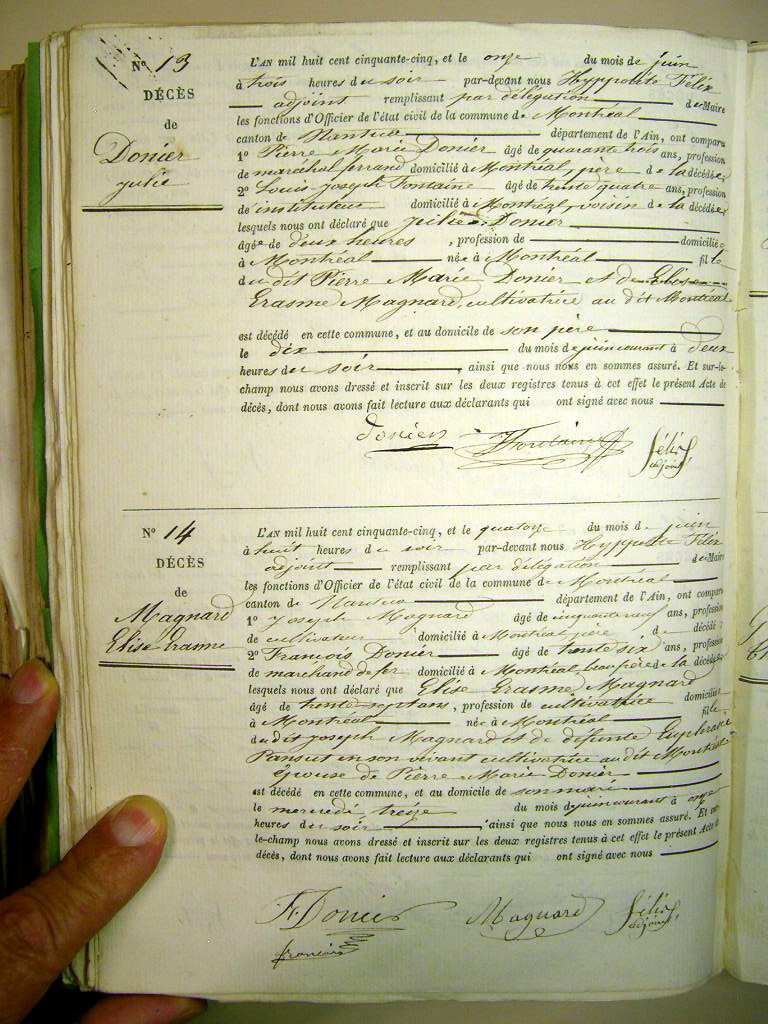 N° 13
DÉCÈS
de
Donier
julie
L'AN mil huit cent cinquante-cinq, et le onze du mois de juin
à trois heures du soir par-devant nous Hyppolite Félix
adjoint remplissant par délégation de Maire
les fonctions d'Officier de l'état civil de la commune de Montréal
canton de Nantua département de l'Ain, ont comparu
1° Pierre Marie Donier âgé de quarante trois ans, profession
de maréchal ferrand domicilié à Montréal, père de la décédée
2° Louis Joseph Fontaine âgé de trente quatre ans, profession
de instituteur domicilié à Montréal, voisin de la décédée
lesquels nous ont déclaré que julie Donier
âgée de deux heures , profession de domicilié
à Montréal née à Montréal fille
du dit Pierre Marie Donier et de Elise
Erasme Magnard, cultivatrice au dit Montréal
est décédé en cette commune, et au domicile de son père
le dix du mois de juin courant à deux
heures du soir , ainsi que nous nous en sommes assuré. Et sur-le-
champ nous avons dressé et inscrit sur les deux registres tenus à cet effet le présent Acte de
décès, dont nous avons fait lecture aux déclarants qui ont signé avec nous
donier Fontaine félix
adjoint
N° 14
DÉCÈS
de
Magnard
Elise Erasme
L'AN mil huit cent cinquante-cinq, et le quatorze du mois de juin
à huit heures du soir par-devant nous Hyppolite Félix
adjoint remplissant par délégation de Maire
les fonctions d'Officier de l'état civil de la commune de Montréal
canton de Nantua département de l'Ain, ont comparu
1° Joseph Magnard âgé de cinquante neuf ans, profession
de cultivateur domicilié à Montréal père de décédé
2° François Donier âgé de trente six ans, profession
de marchand de fer domicilié à Montréal beau frère de la décédée
lesquels nous ont déclaré que Elise Erasme Magnard
âgé de trente sept ans , profession de cultivatrice domicilié
à Montréal née à Montréal fille
du dit joseph Magnard et de défunte Euphrasie
Pansut en son vivant cultivatrice au dit Montréal
épouse de Pierre Marie Donier
est décédé en cette commune, et au domicile de son mari
le mercredi treize du mois de juin courant à onze
heures du soir , ainsi que nous nous en sommes assuré. Et sur-
le-champ nous avons dressé et inscrit sur les deux registres tenus à cet effet le présent Acte de
décès, dont nous avons fait lecture aux déclarants qui ont signé avec nous
F. Donier Magnard félix
françois adjoint